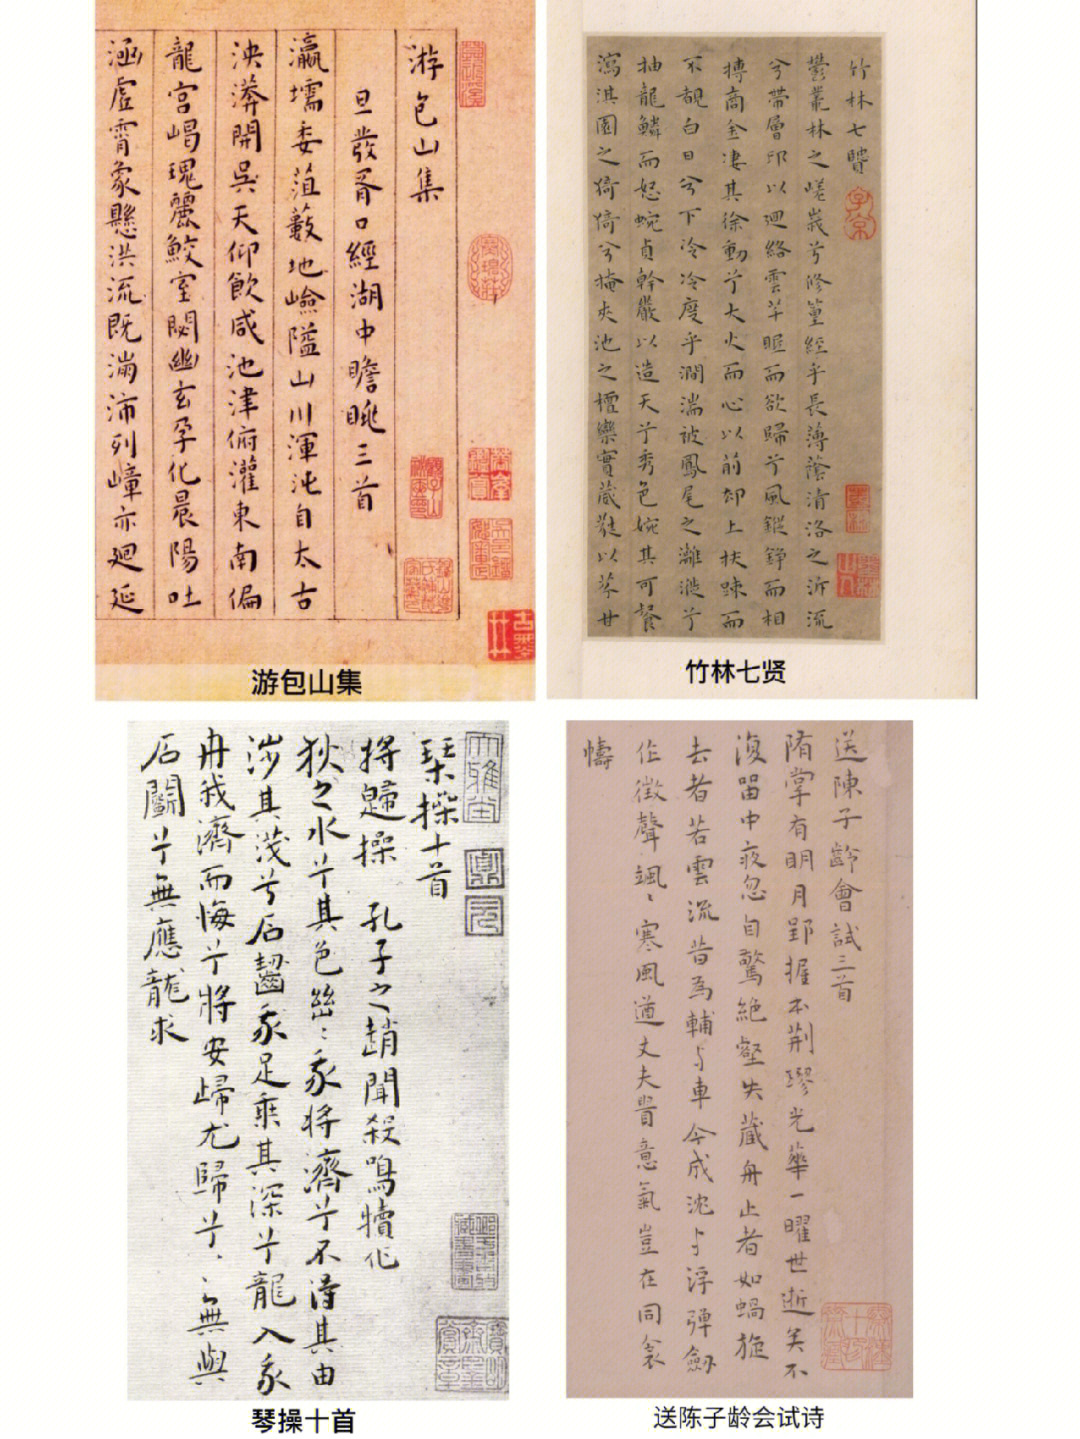 游包山集
旦發胥口經湖中瞻眺三首
瀛壖委菹藪地嶮隘山川渾沌自太古
泱漭開吳天仰飲咸池津俯灌東南偏
龍宮嵑瑰麗鮫室閟幽玄孕化晨陽吐
涵虛霄象懸洪流既滿沛列嶂亦迴延
游包山集
竹林七賢
鬱叢林之嵯峩兮修篁經乎長薄蔭清洛之沂流
兮帶層邱以迴絡雲芊眠而欲歸兮風鏦錚而相
摶商金凄其徐動兮大火而心以前却上扶踈而
不覩白日兮下泠泠度乎澗湍被鳳尾之灕漇兮
抽龍鱗而怒蜿貞幹嚴以造天兮秀色婉其可餐
瀉淇園之猗猗兮掩夾池之檀欒實葳蕤以芬甘
竹林七贤
琴操十首
將歸操 孔子之趙聞殺鳴犢作
狄之水兮其色幽幽我將濟兮不得其由
涉其淺兮石齧我足乘其深兮龍入我
舟我濟而悔兮將安歸尤歸兮歸兮無與
石鬭兮無應龍求
琴操十首
送陳子齡會試三首
隋掌有明月郢握本荆璆光華一曜世逝矣不
復留中夜忽自驚絕壑失藏舟止者如蝸旋
去者若雲流昔為輔與車今成沈與浮彈劔
作徵聲颯颯寒風遒丈夫貴意氣豈在同衾
幬
送陈子龄会试诗